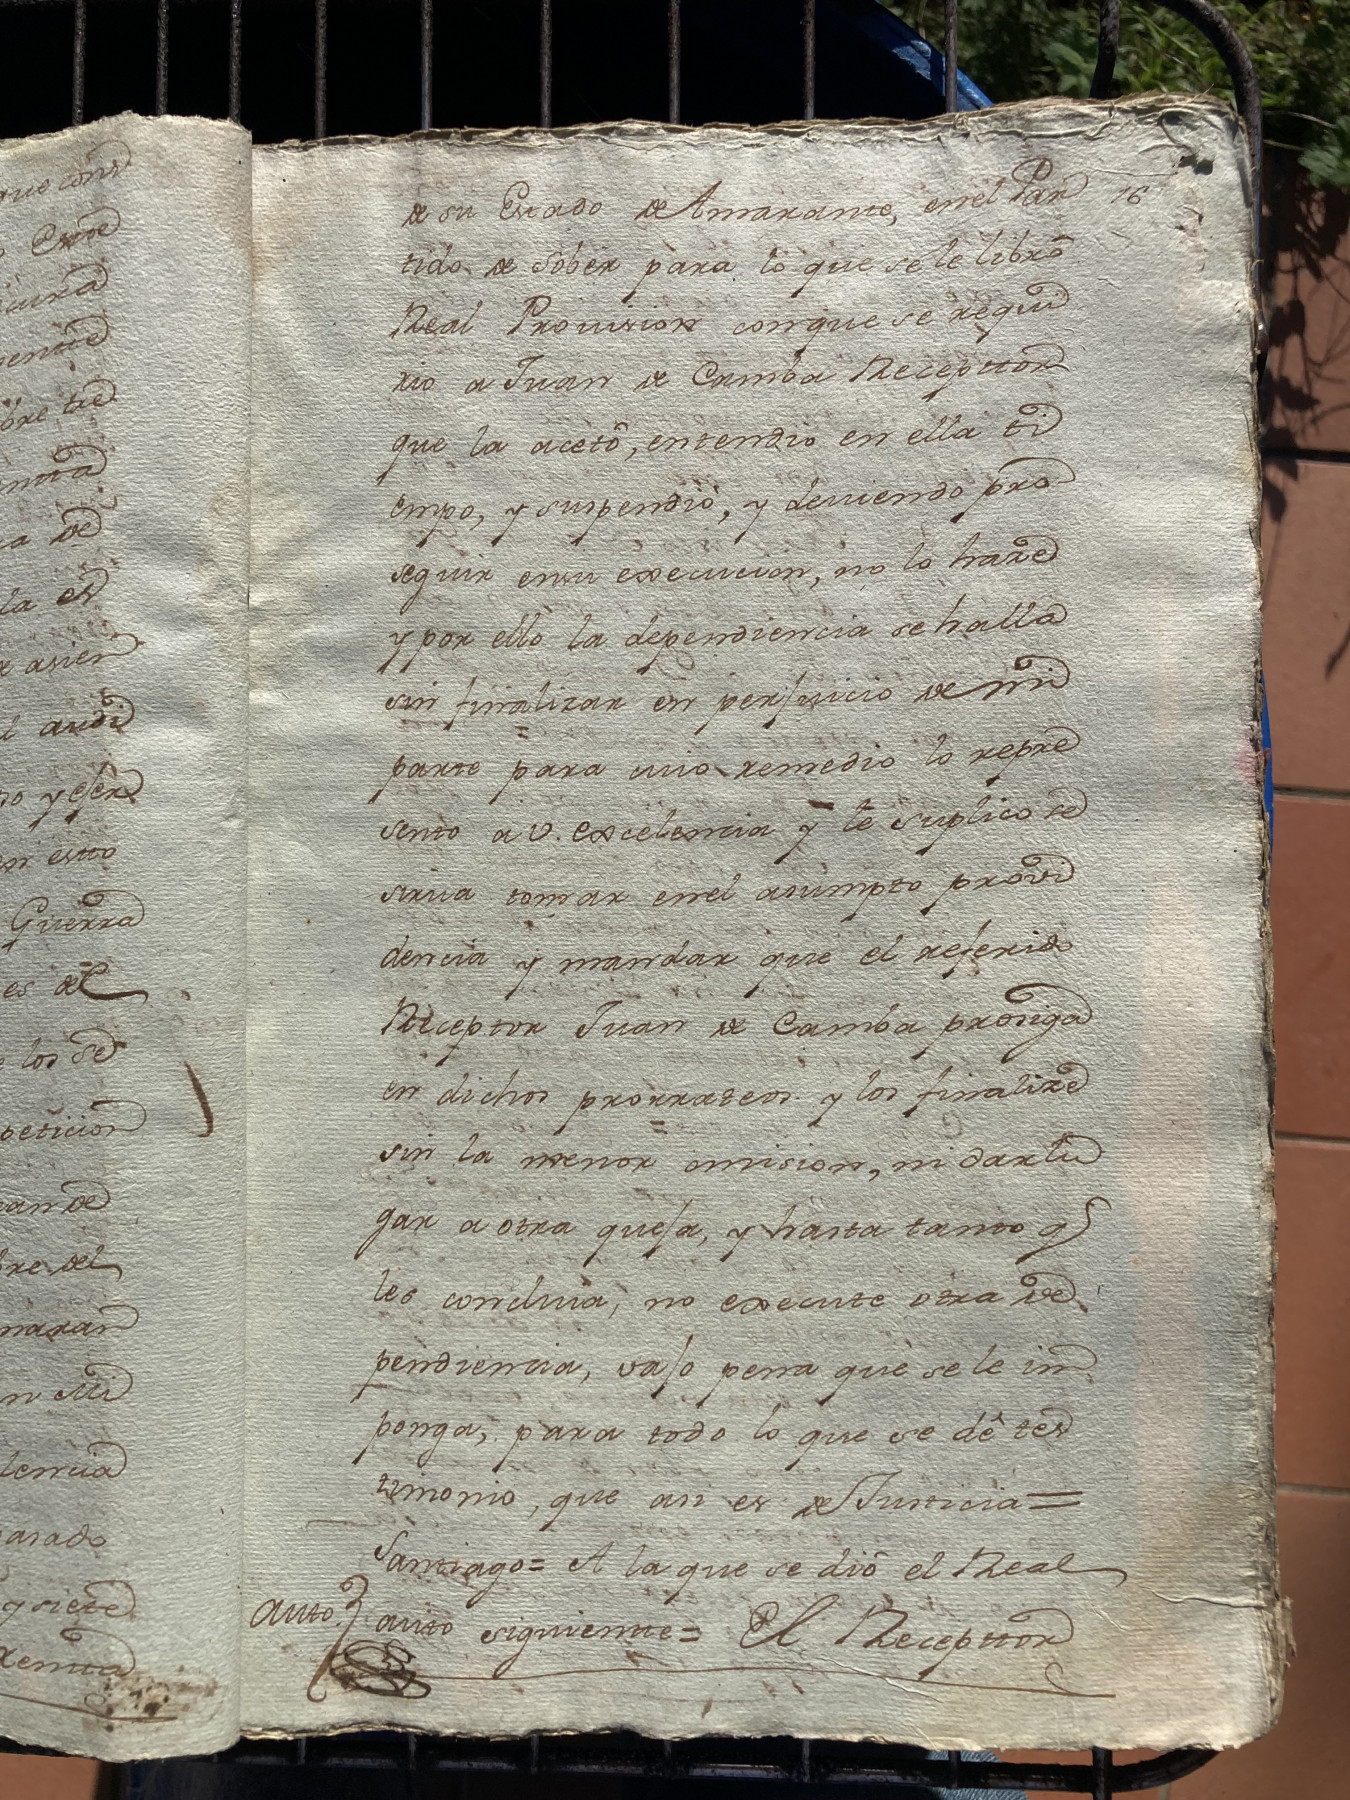 que cons
Exme
Guerra
es de
los se
peticion
an de
bre del
maran
en mi
lencia
asado
y siete
16
de su Estado de Amarante, en el Par
tido de Sober para lo que se le libró
Real Provision con que se requi
rio a Juan de Camba Recepttor
que la acetó, entendio en ella ti
empo, y suspendió, y deviendo pro
seguir en su execucion, no lo hare
y por ello la dependiencia se halla
sin finalizar en perjuicio de mi
parte para cuio remedio lo repre
sento a v. excelencia y le suplico se
sirva tomar en el asumpto provi
dencia y mandar que el referido
Receptor Juan de Camba prosiga
en dichos prorrateos y los finalize
sin la menor omision, ni dar lu
gar a otra queja, y hasta tanto q
les concluia, no execute otra de
pendiencia, vajo pena que se le im
ponga, para todo lo que se dé tes
timonio, que asi es de Justicia =
Santiago = A la que se dió el Real
auto
auto siguiente = El Recepttor